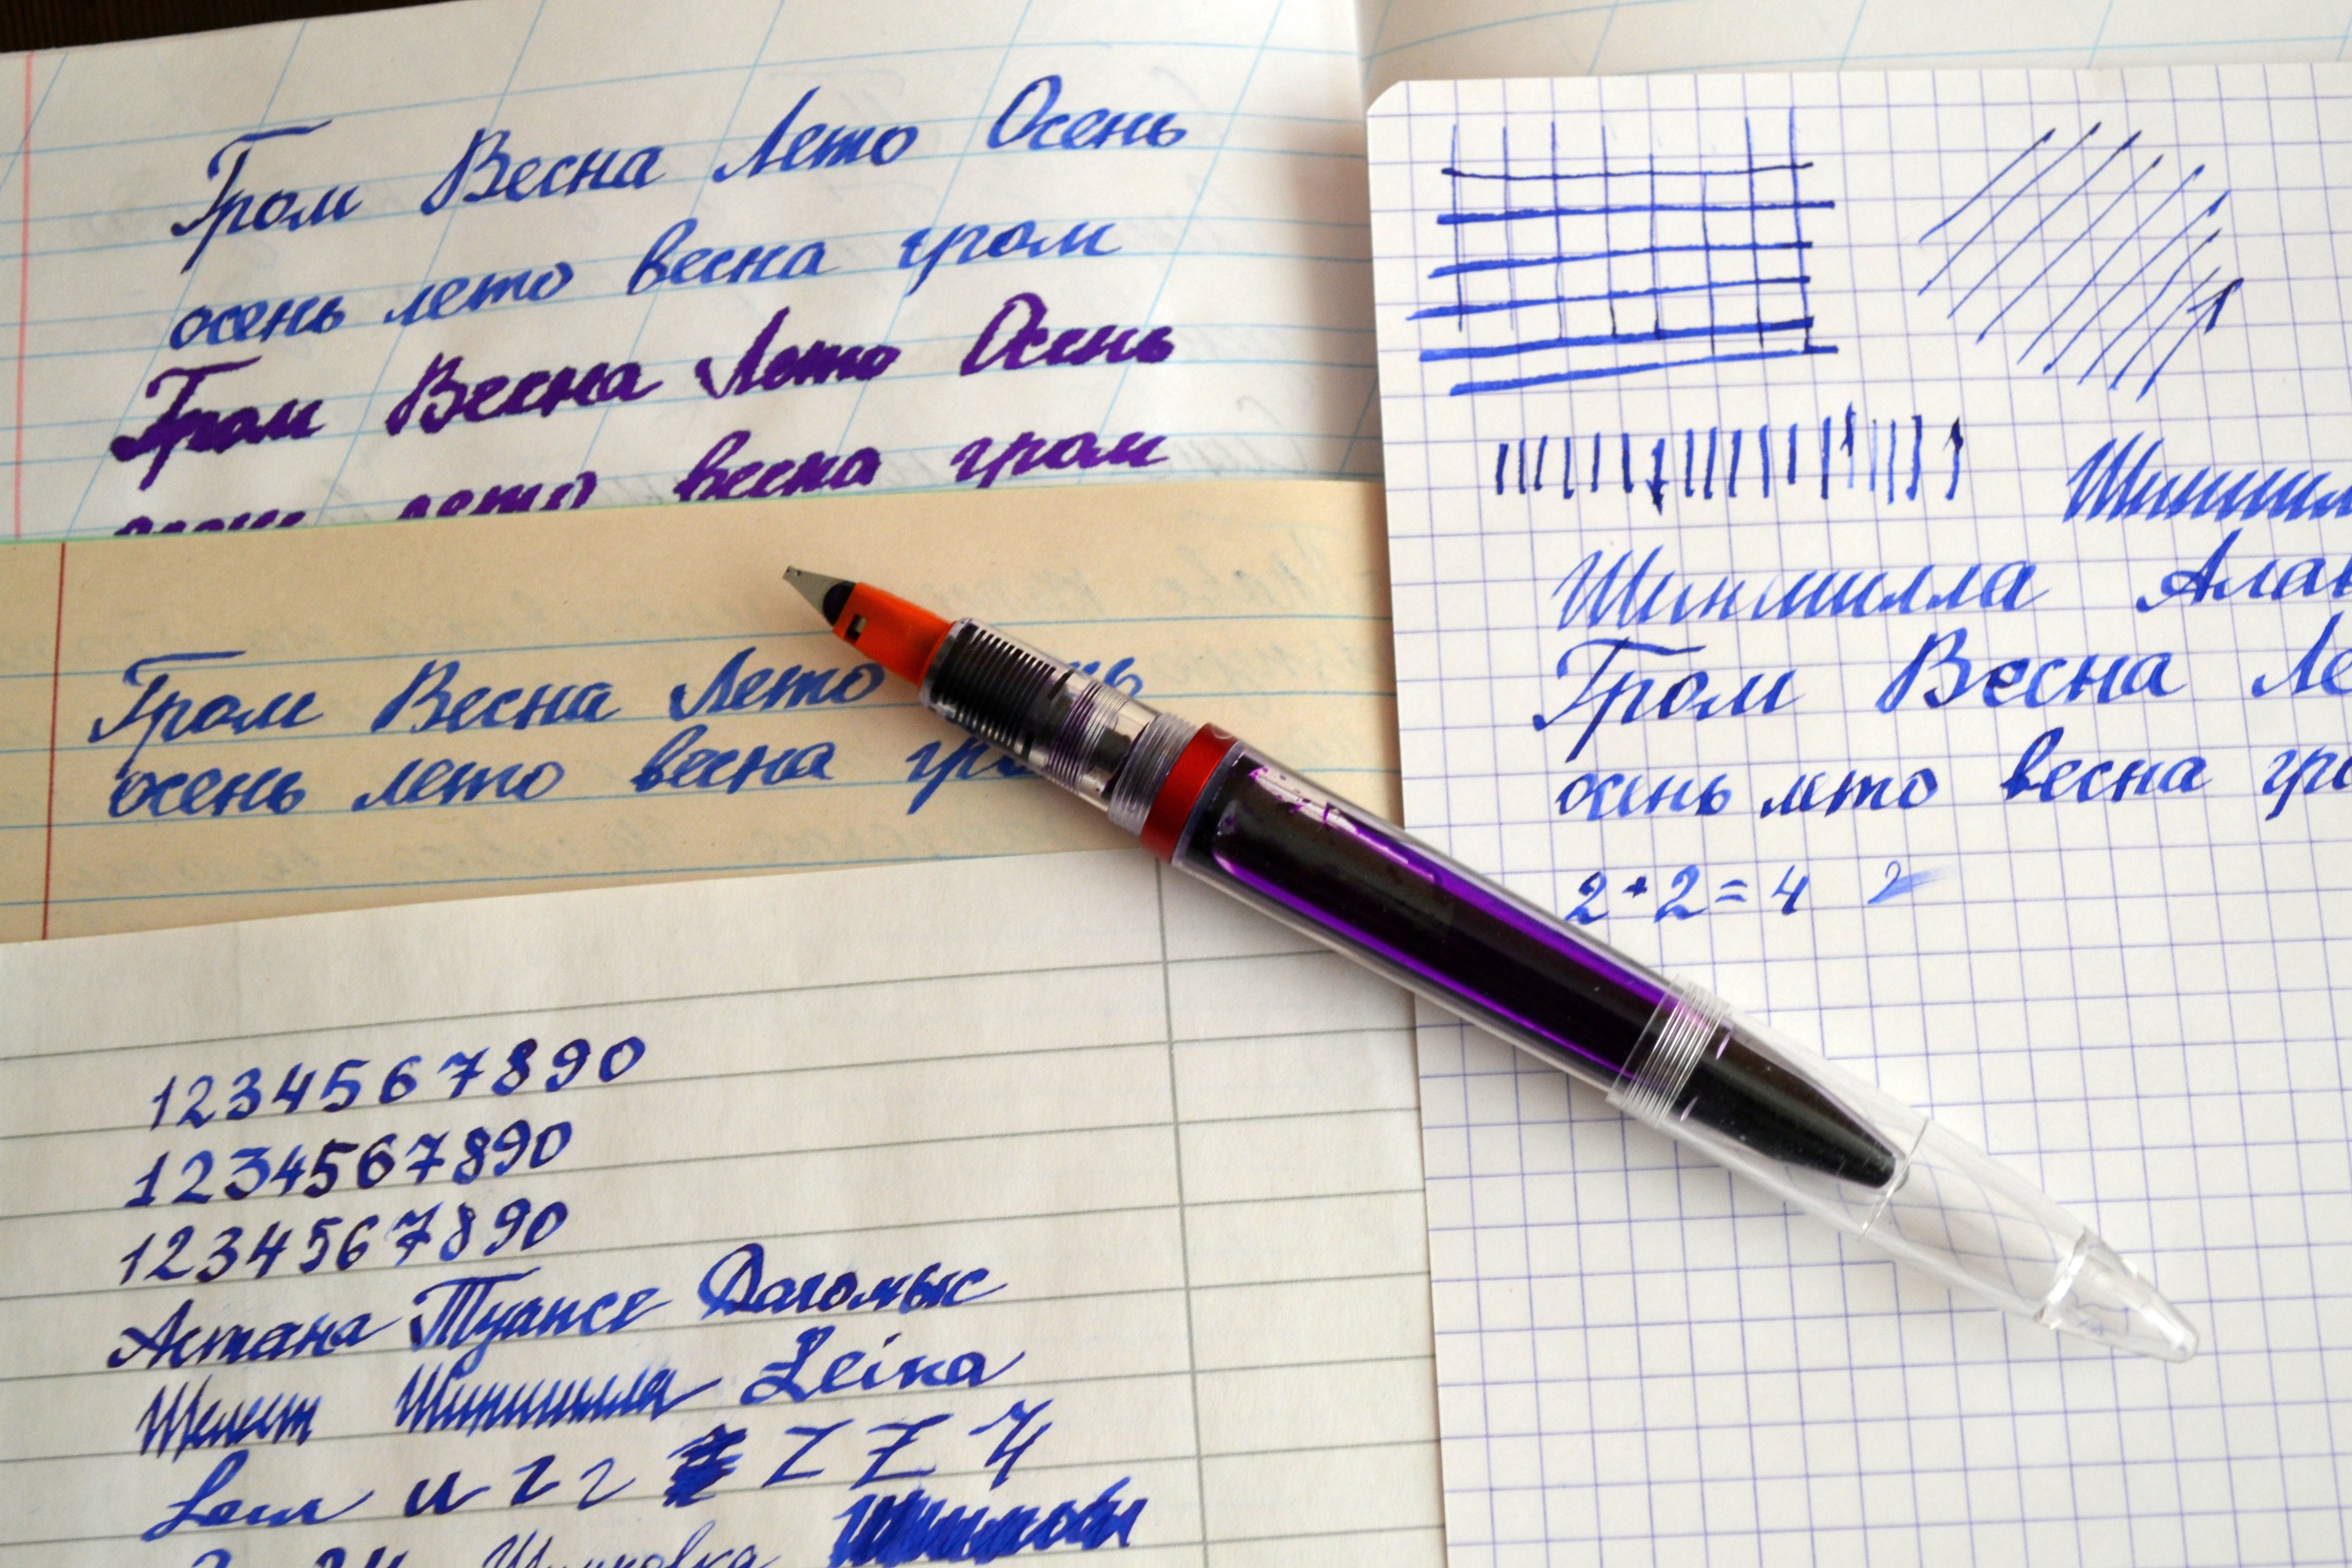 Гром Весна Лето Осень
осень лето весна гром
Гром Весна Лето Осень
лето весна гром
Гром Весна Лето
осень лето весна
1234567890
1234567890
1234567890
Астана Туапсе Дагомыс
Шелест Шиншилла Leika
и z z Z Z
Шиншилла
Гром Весна
осень лето весна
2+2=4 2